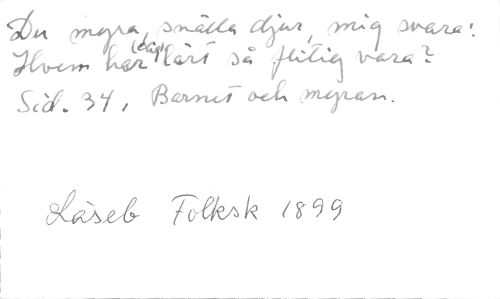 Du myra, snälla djur, mig svara!
Hvem har (dig) lärt så flitig vara?
Sid. 34, Barnet och myran.
Läseb Folksk 1899